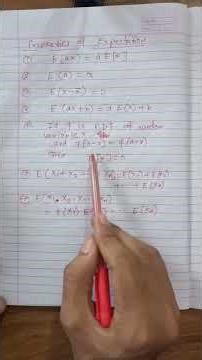 Properties of Expectation
(1) E(ax) = a E[x]
(2) E(a) = a
(3) E(x-x̄) = 0
(4) E(ax+b) = a E(x)+b
(5) If f is p.d.f of random
variable x
and f(a-x) = f(a+x)
Then [x] = a
E(x1+x2 = E(x1)+E(x2)
+ --- E(xn)
E(x1 . x2
= E(x1) E( --- E(xn)